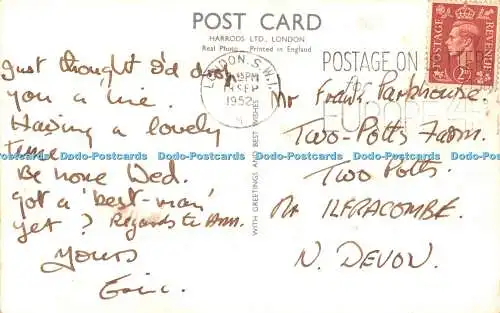 POST CARD
HARRODS LTD., LONDON
Real Photo - Printed in England
LONDON. S.W.1.
SEP
1952
POSTAGE ON LETTERS
POSTAGE REVENUE
WITH GREETINGS AND BEST WISHES
Just thought I'd drop
you a line.
Having a lovely
time
Be home Wed.
Got a 'best-man'
yet? Regards to Ann.
Yours
Eric.
Mr Frank Parkhouse.
Two-Potts Farm.
Two Potts.
Nr ILFRACOMBE.
N. DEVON.
Dodo-Postcards Dodo-Postcards Dodo-Postcards Dodo-Postcards Dodo-Postcards